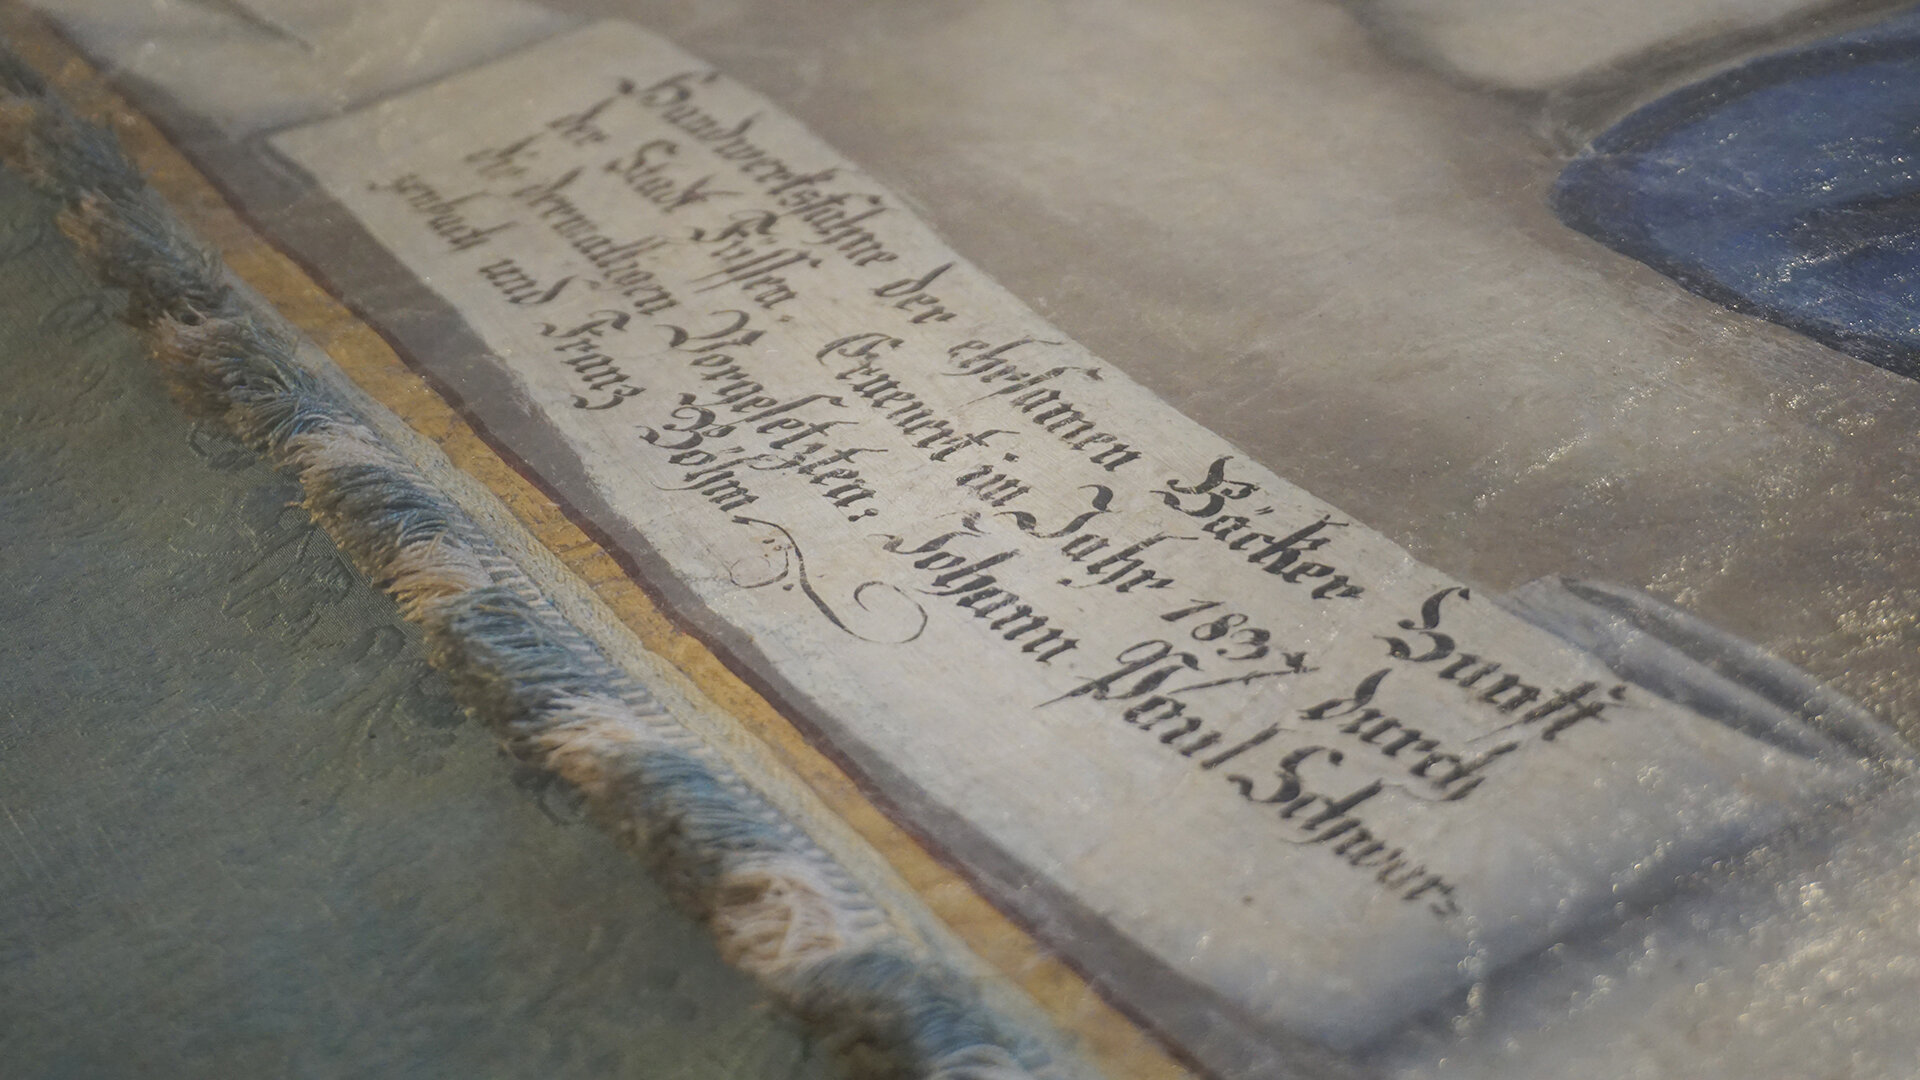 Handwerksfahne der ehrsamen Bäcker Zunft
der Stadt Füssen. Erneuert im Jahr 1837 durch
die dermaligen Vorgesetzten: Johann Paul Schwar=
zenbach und Franz Böhm.